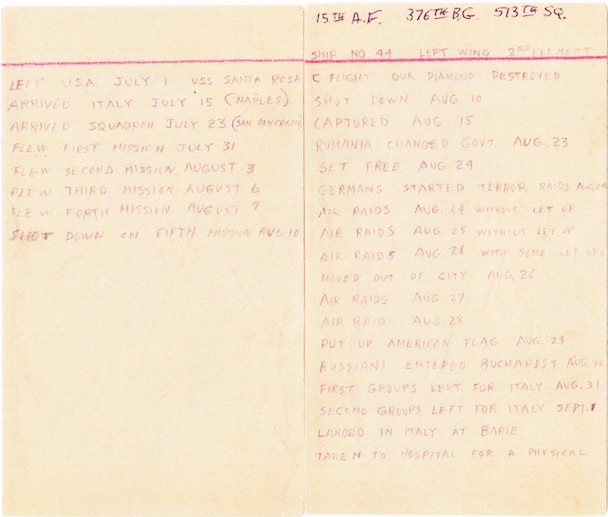 LEFT USA JULY 1 USS SANTA ROSA
ARRIVED ITALY JULY 15 (NAPLES)
ARRIVED SQUADRON JULY 23 (SAN PANCRAZIO)
FLEW FIRST MISSION JULY 31
FLEW SECOND MISSION AUGUST 3
FLEW THIRD MISSION AUGUST 6
FLEW FORTH MISSION AUGUST 9
SHOT DOWN ON FIFTH MISSION AUG. 10
15TH A.F. 376TH B.G. 513TH SQ.
SHIP NO 44 LEFT WING 2ND ELEMENT
C FLIGHT OUR DIAMOND DESTROYED
SHOT DOWN AUG. 10
CAPTURED AUG. 15
RUMANIA CHANGED GOVT. AUG. 23
SET FREE AUG 24
GERMANS STARTED TERROR RAIDS AUG 24
AIR RAIDS AUG. 24 WITHOUT LET UP
AIR RAIDS AUG. 25 WITHOUT LET UP
AIR RAIDS AUG. 26 WITH SOME LET UPS
MOVED OUT OF CITY AUG. 26
AIR RAIDS AUG. 27
AIR RAID AUG. 28
PUT UP AMERICAN FLAG AUG. 29
RUSSIANS ENTERED BUCHAREST AUG.
FIRST GROUPS LEFT FOR ITALY AUG. 31
SECOND GROUPS LEFT FOR ITALY SEPT. 1
LANDED IN ITALY AT BARIE
TAKEN TO HOSPITAL FOR A PHYSICAL